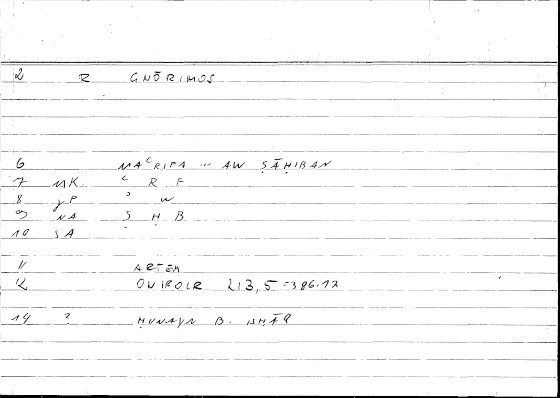 2 R GNŌRIMOS
6 MAʿRIFA ... AW ṢĀḤIBAN
7 MK ʿ R F
8 gP ʾ W
9 NA Ṣ Ḥ B
10 SA
11 ARTEM
12 ONIROCR 213,5 = 386.12
14 ? ḤUNAYN B. ISḤĀQ